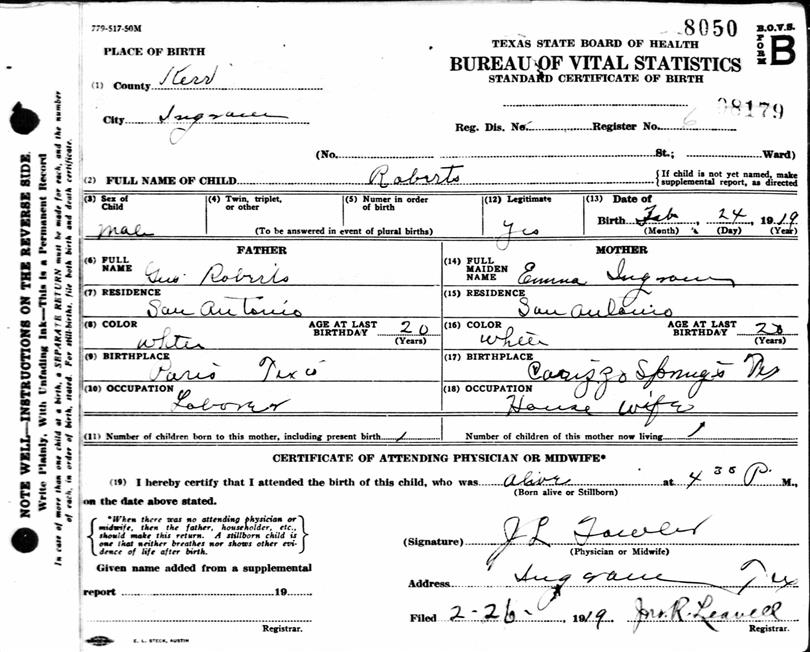 779-517-50M
8050
B.O.V.S.
FORM B
TEXAS STATE BOARD OF HEALTH
BUREAU OF VITAL STATISTICS
STANDARD CERTIFICATE OF BIRTH
PLACE OF BIRTH
(1) County Kerr
City Ingram
08179
Reg. Dis. No. Register No. 6
(No. St.; Ward)
(2) FULL NAME OF CHILD Roberts { If child is not yet named, make supplemental report, as directed
(3) Sex of Child male
(4) Twin, triplet, or other
(5) Numer in order of birth
(To be answered in event of plural births)
(12) Legitimate Yes
(13) Date of Birth Feb, 24, 1919
(Month) (Day) (Year)
FATHER
(6) FULL NAME Geo. Roberts
(7) RESIDENCE San Antonio
(8) COLOR White AGE AT LAST BIRTHDAY 20 (Years)
(9) BIRTHPLACE Paris Texas
(10) OCCUPATION Laborer
MOTHER
(14) FULL MAIDEN NAME Emma Ingram
(15) RESIDENCE San Antonio
(16) COLOR White AGE AT LAST BIRTHDAY (Years)
(17) BIRTHPLACE Carizzo Springs Tex
(18) OCCUPATION House wife
(11) Number of children born to this mother, including present birth 1 Number of children of this mother now living 1
CERTIFICATE OF ATTENDING PHYSICIAN OR MIDWIFE*
(19) I hereby certify that I attended the birth of this child, who was alive at 4 35 P. M.,
(Born alive or Stillborn)
on the date above stated.
{ *When there was no attending physician or
midwife, then the father, householder, etc.,
should make this return. A stillborn child is
one that neither breathes nor shows other evi-
dence of life after birth. }
Given name added from a supplemental
report 19
Registrar.
(Signature) J L Fowler
(Physician or Midwife)
Address Ingram Tex
Filed 2-26- 1919 Jno. R. Leavell
Registrar.
E. L. STECK, AUSTIN
NOTE WELL—INSTRUCTIONS ON THE REVERSE SIDE.
Write Plainly, With Unfading Ink—This is a Permanent Record
In case of more than one child at a birth, a SEPARATE RETURN must be made for each, and the number
of each, in order of birth, stated. For stillbirths, file both birth and death certificate.